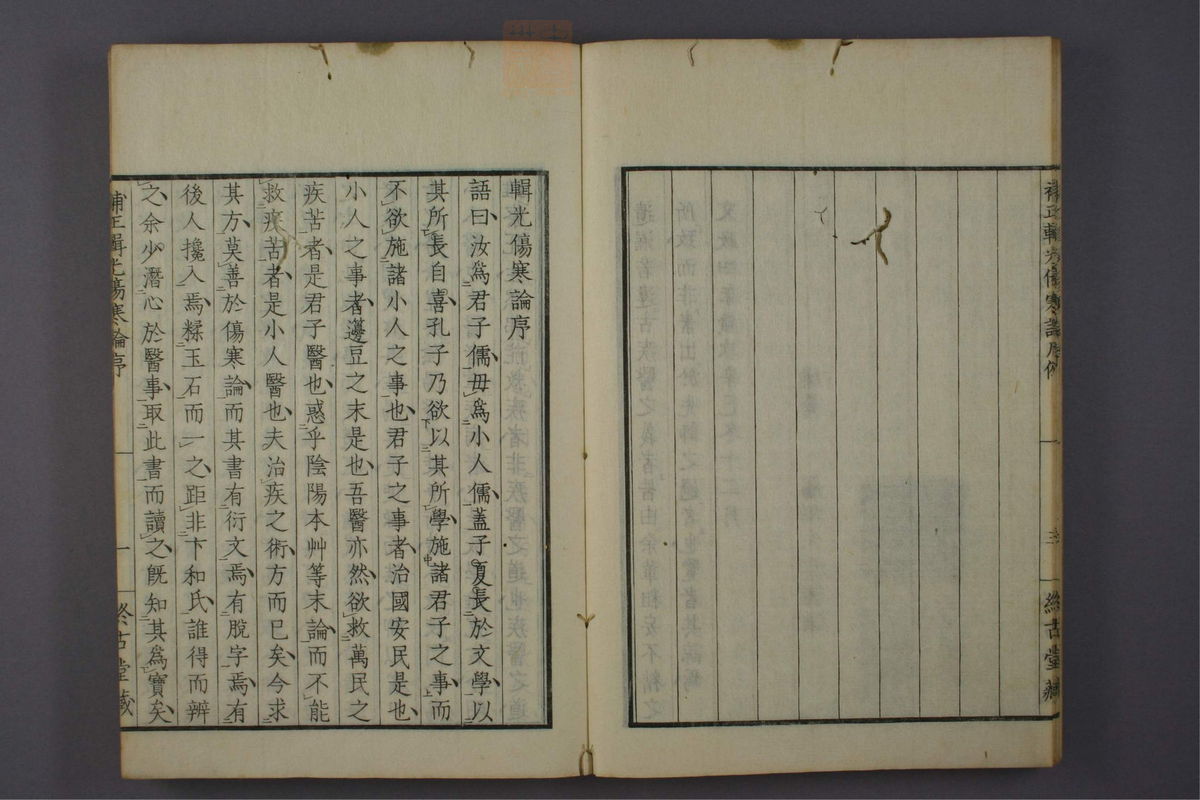 補正輯光傷寒論凡例
終古堂藏
輯光傷寒論序
語曰汝爲君子儒毋爲小人儒蓋子夏長於文學以
其所長自喜孔子乃欲以其所學施諸君子之事而
不欲施諸小人之事也君子之事者治國安民是也
小人之事者籩豆之末是也吾醫亦然欲救萬民之
疾苦者是君子醫也惑乎陰陽本艸等末論而不能
救疾苦者是小人醫也夫治疾之術方而已矣今求
其方莫善於傷寒論而其書有衍文焉有脫字焉有
後人攙入焉糅玉石而一之距非卞和氏誰得而辨
之余少潛心於醫事取此書而讀之旣知其爲寶矣
補正輯光傷寒論序
一
終古堂藏